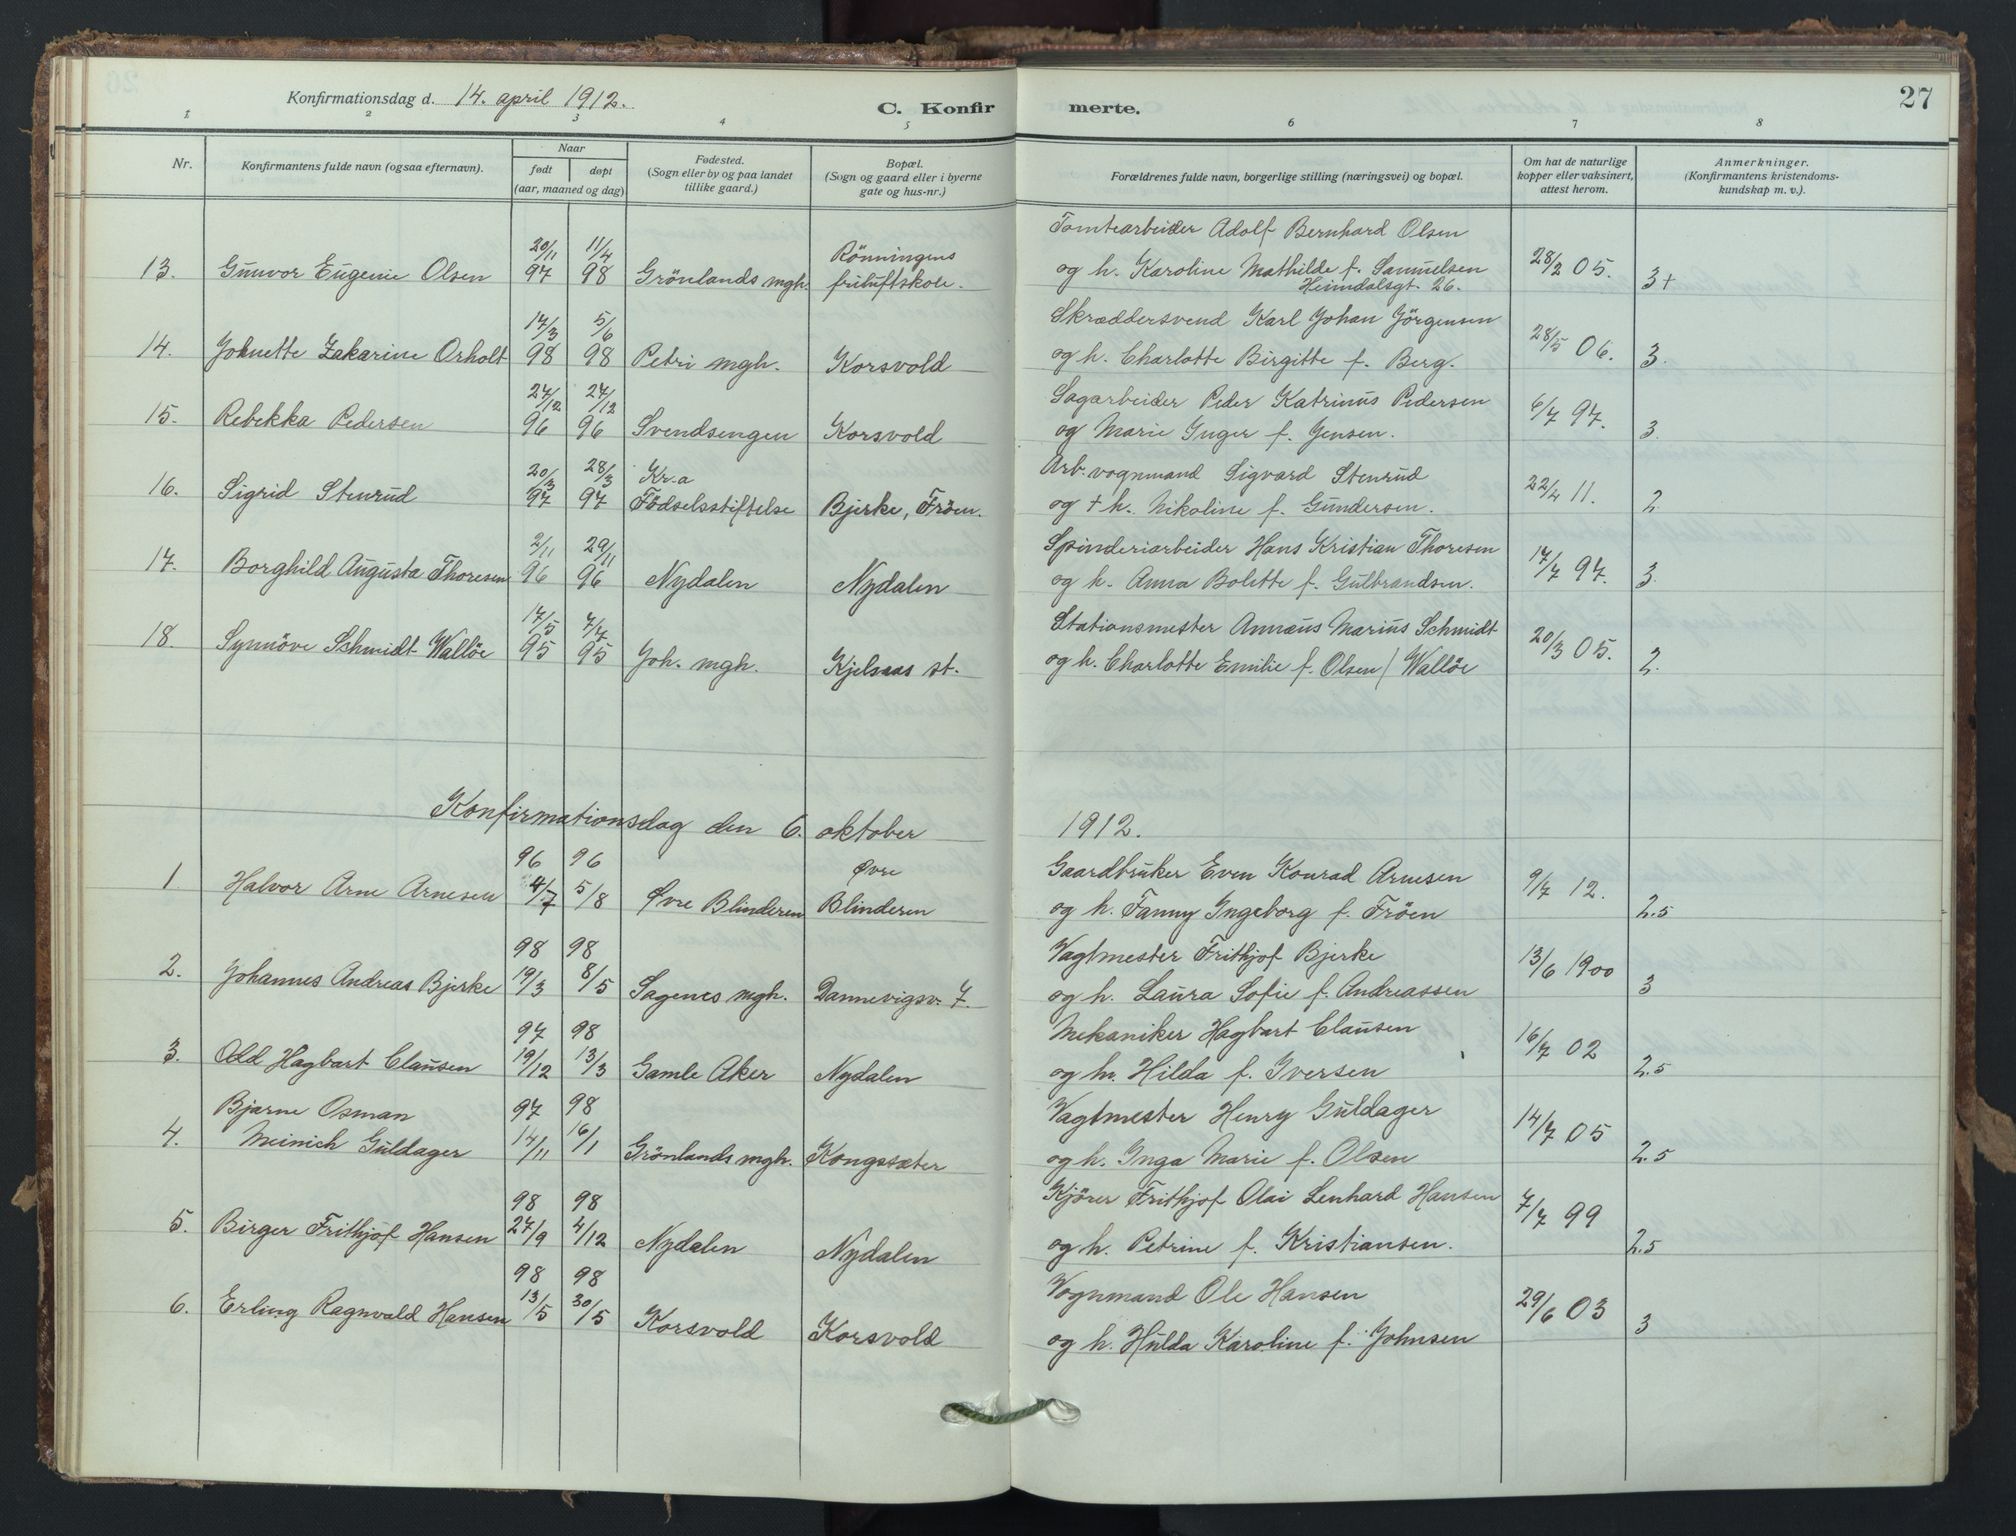 Konfirmationsdag d. 14. april 1912.
C. Konfirmerte.
27
1 2 3 4 5 6 7 8
Nr.
Konfirmantens fulde navn (ogsaa efternavn).
Naar
født døpt
(aar, maaned og dag)
Fødested.
(Sogn eller by og paa landet
tillike gaard.)
Bopæl.
(Sogn og gaard eller i byerne
gate og hus-nr.)
Forældrenes fulde navn, borgerlige stilling (næringsvei) og bopæl.
Om hat de naturlige
kopper eller vaksinert,
attest herom.
Anmerkninger.
(Konfirmantens kristendoms-
kundskap m. v.).
13. Gunvor Eugenie Olsen 20/11 97 11/4 98 Grönlands mgh. Rönningens friluftskole.
Tomtearbeider Adolf Bernhard Olsen
og h. Karoline Mathilde f. Samuelsen
Heimdalsgt. 26.
28/2 05. 3+
14. Johnette Zakarine Orholt 17/3 98 5/6 98 Petri mgh. Korsvold
Skræddersvend Karl Johan Jörgensen
og h. Charlotte Birgitte f. Berg.
28/5 06. 3.
15. Rebekka Pedersen 27/12 96 27/12 96 Svendsengen Korsvold
Sagarbeider Peder Katrinus Pedersen
og Marie Inger f. Jensen.
6/7 97. 3.
16. Sigrid Stenrud 20/3 97 28/3 97 Kr.a Födselsstiftelse Bjerke, Fröen.
Arb. vognmand Sigvard Stenrud
og + h. Nikoline f. Gundersen.
22/4 11. 2.
17. Borghild Augusta Thoresen 2/11 96 29/11 96 Nydalen Nydalen
Spinderiarbeider Hans Kristian Thoresen
og h. Anna Bolette f. Gulbrandsen.
17/7 97. 3.
18. Synnöve Schmidt Wallöe 17/5 95 7/7 95 Joh. mgh. Kjelsaas st.
Stationsmester Annæus Marius Schmidt
og h. Charlotte Emilie f. Olsen / Wallöe
20/3 05. 2.
Konfirmationsdag den 6. oktober 1912.
1. Halvor Arne Arnesen 96 4/7 96 5/8 Øvre Blinderen Øvre Blinderen
Gaardbruker Even Konrad Arnesen
og h. Fanny Ingeborg f. Fröen
9/7 12. 2.5
2. Johannes Andreas Bjerke 98 19/3 98 8/5 Sagenes mgh. Dannevigsv. 7.
Vagtmester Frithjof Bjerke
og h. Laura Sofie f. Andreassen
13/6 1900 3
3. Odd Hagbart Clausen 97 19/12 98 13/3 Gamle Aker Nydalen
Mekaniker Hagbart Clausen
og h. Hilda f. Iversen
16/7 02 2.5
4. Bjarne Osman
Meinich Guldager 97 14/11 98 16/1 Grönlands mgh. Kongssæter
Vagtmester Henry Guldager
og h. Inga Marie f. Olsen
14/7 05 2.5
5. Birger Frithjof Hansen 98 27/9 98 4/12 Nydalen Nydalen
Kjörer Frithjof Olai Lenhard Hansen
og h. Petrine f. Kristiansen.
7/7 99 2.5
6. Erling Ragnvald Hansen 98 13/5 98 30/5 Korsvold Korsvold
Vognmand Ole Hansen
og h. Hulda Karoline f. Johnsen
29/6 03 3